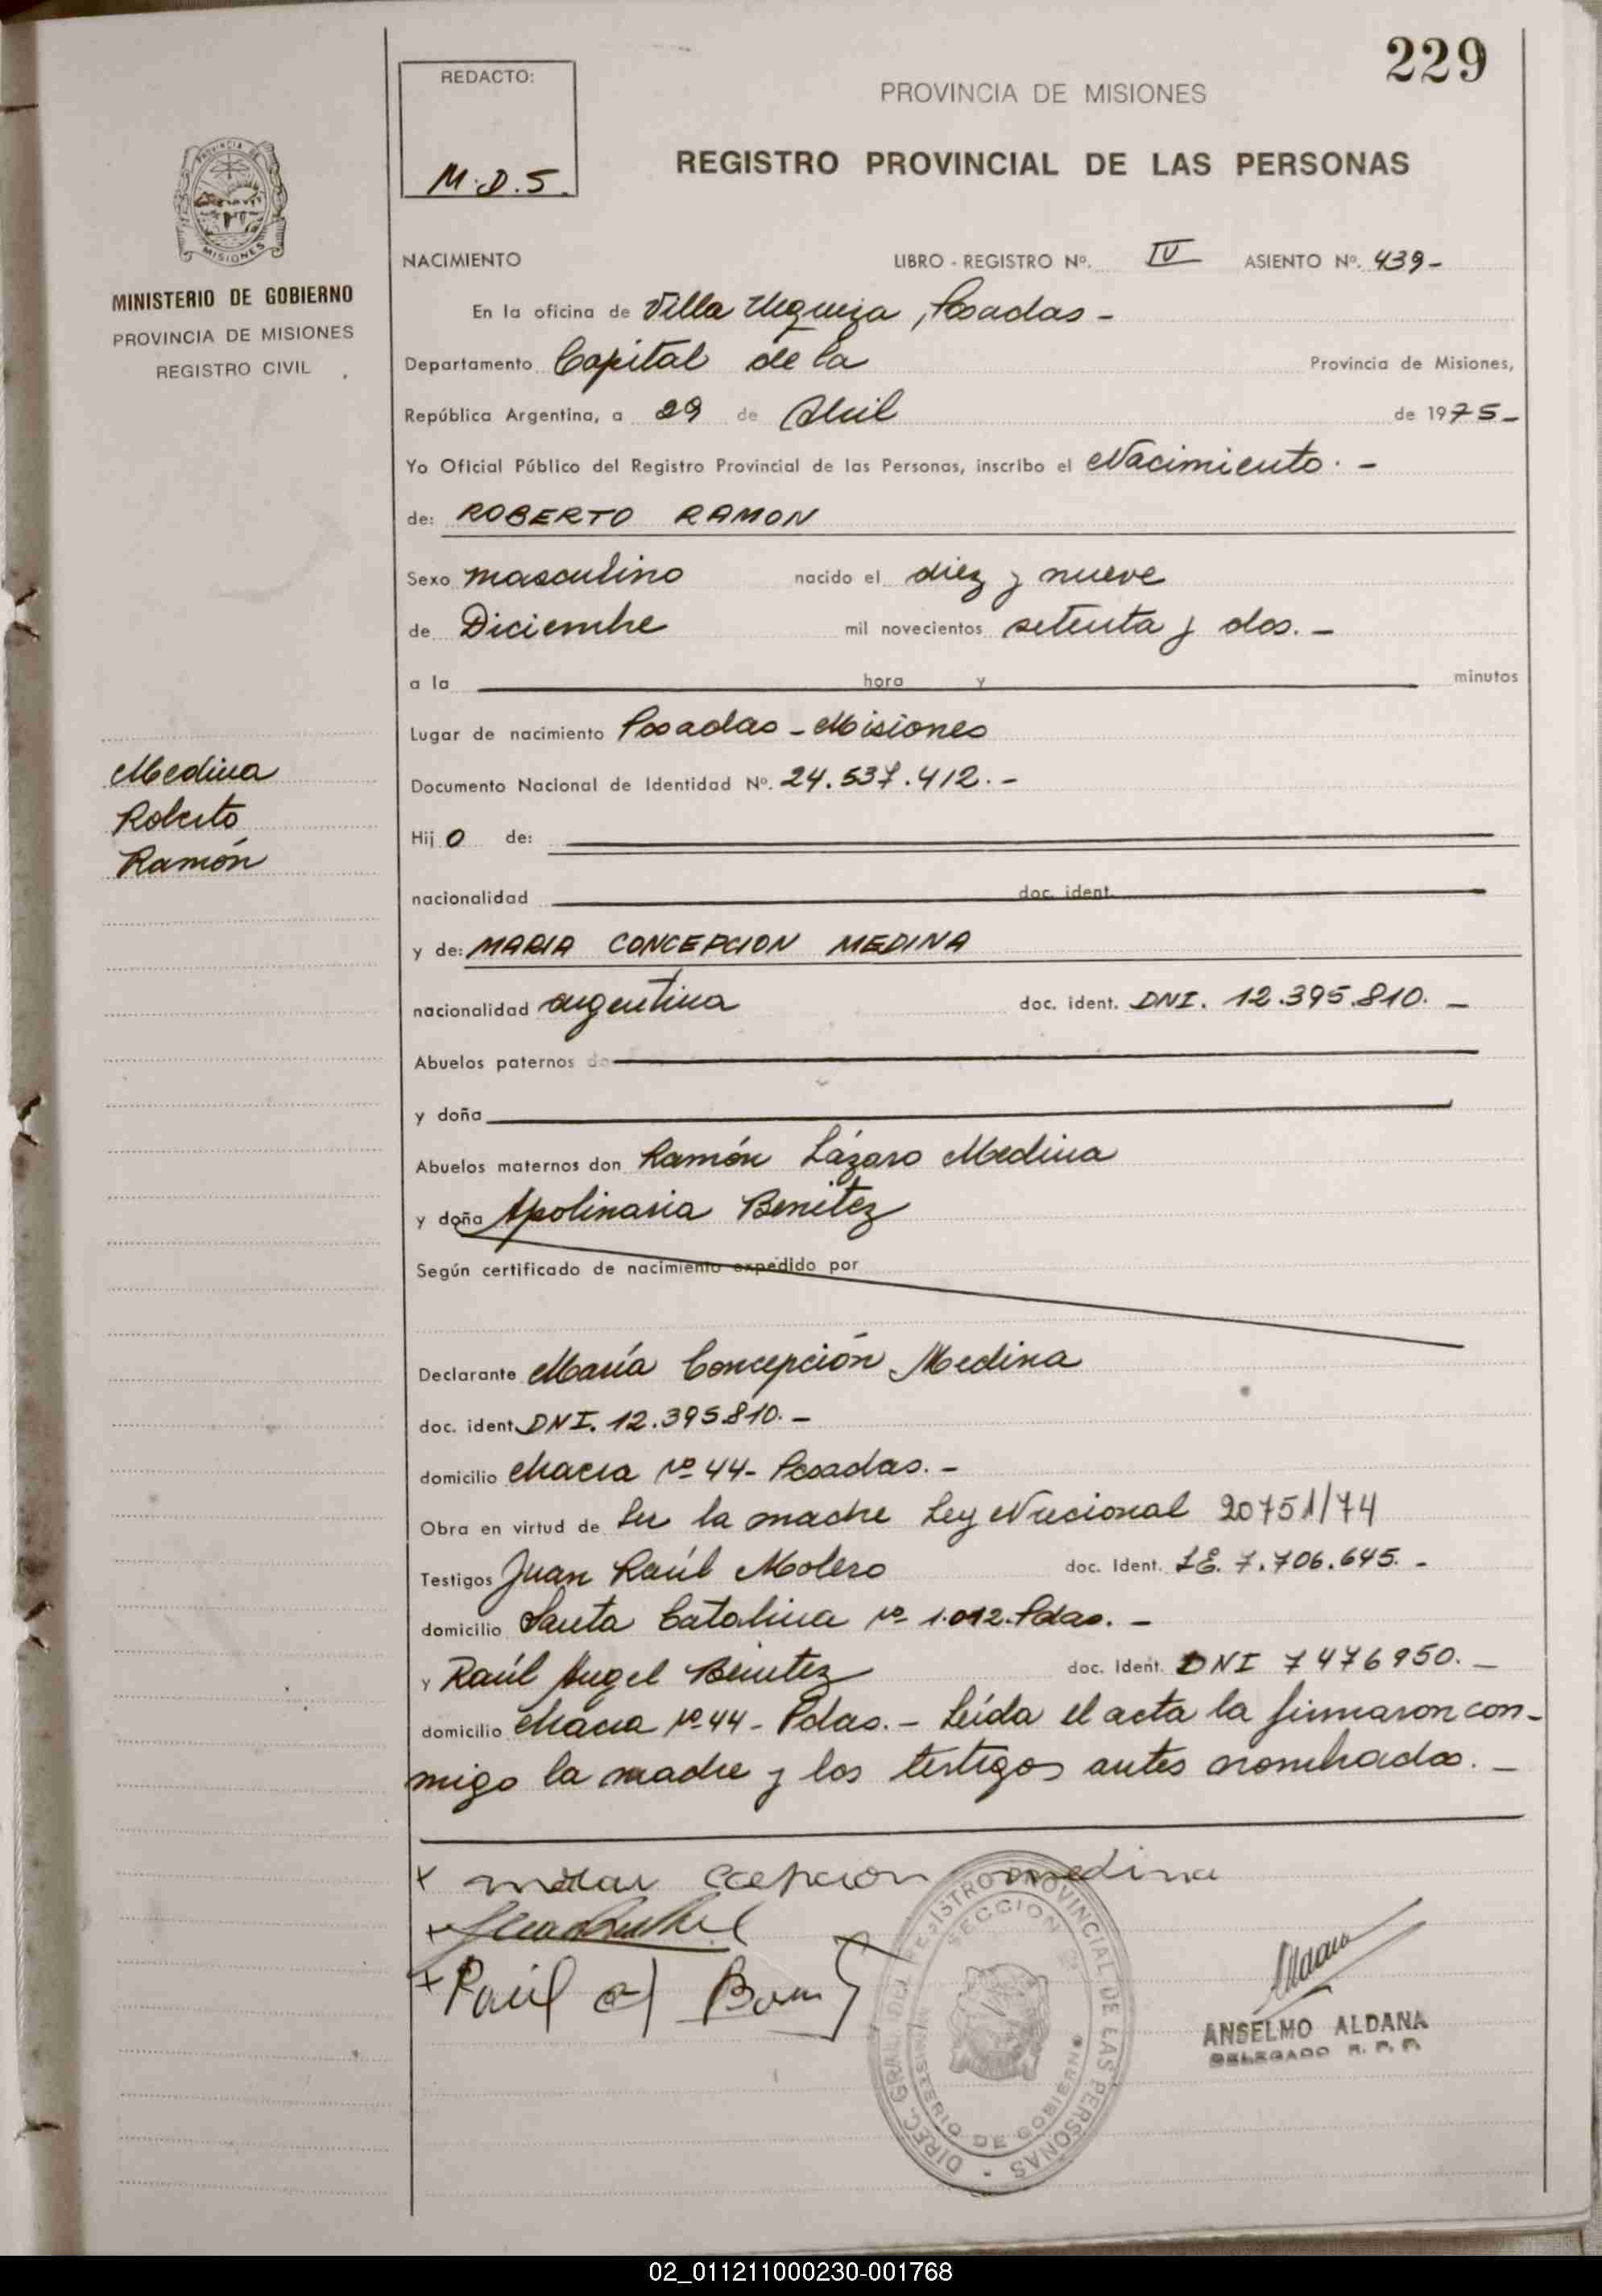 229
REDACTO:
M.D.S.
PROVINCIA DE MISIONES
REGISTRO PROVINCIAL DE LAS PERSONAS
PROVINCIA DE
MISIONES
MINISTERIO DE GOBIERNO
PROVINCIA DE MISIONES
REGISTRO CIVIL
NACIMIENTO LIBRO - REGISTRO Nº. IV ASIENTO Nº. 439-
En la oficina de Villa Urquiza, Posadas -
Departamento Capital de la Provincia de Misiones,
República Argentina, a 29 de Abril de 1975-
Yo Oficial Público del Registro Provincial de las Personas, inscribo el Nacimiento. -
de: ROBERTO RAMON
Sexo masculino nacido el diez y nueve
de Diciembre mil novecientos setenta y dos. -
a la hora y minutos
Lugar de nacimiento Posadas - Misiones
Medina
Roberto
Ramón
Documento Nacional de Identidad Nº. 24.537.412. -
Hij o de:
nacionalidad doc. ident.
y de: MARIA CONCEPCION MEDINA
nacionalidad argentina doc. ident. DNI. 12.395.810. -
Abuelos paternos do
y doña
Abuelos maternos don Ramón Lázaro Medina
y doña Apolinaria Benitez
Según certificado de nacimiento expedido por
Declarante María Concepción Medina
doc. ident. DNI. 12.395.810. -
domicilio Chacra Nº 44- Posadas. -
Obra en virtud de Ser la madre Ley Nacional 20751/74
Testigos Juan Raúl Molero doc. Ident. LE. 7.706.645. -
domicilio Santa Catalina Nº 1.012. Pdas. -
y Raúl Angel Benitez doc. Ident. DNI 7476950. -
domicilio Chacra Nº 44 - Pdas. - Leída el acta la firmaron con-
migo la madre y los testigos antes nombrados. -
medina
Raúl A
DIREC. GRAL. DEL REGISTRO PROVINCIAL DE LAS PERSONAS
SECCION
MINISTERIO DE GOBIERNO
ANSELMO ALDANA
DELEGADO R. P. P.
02_011211000230-001768